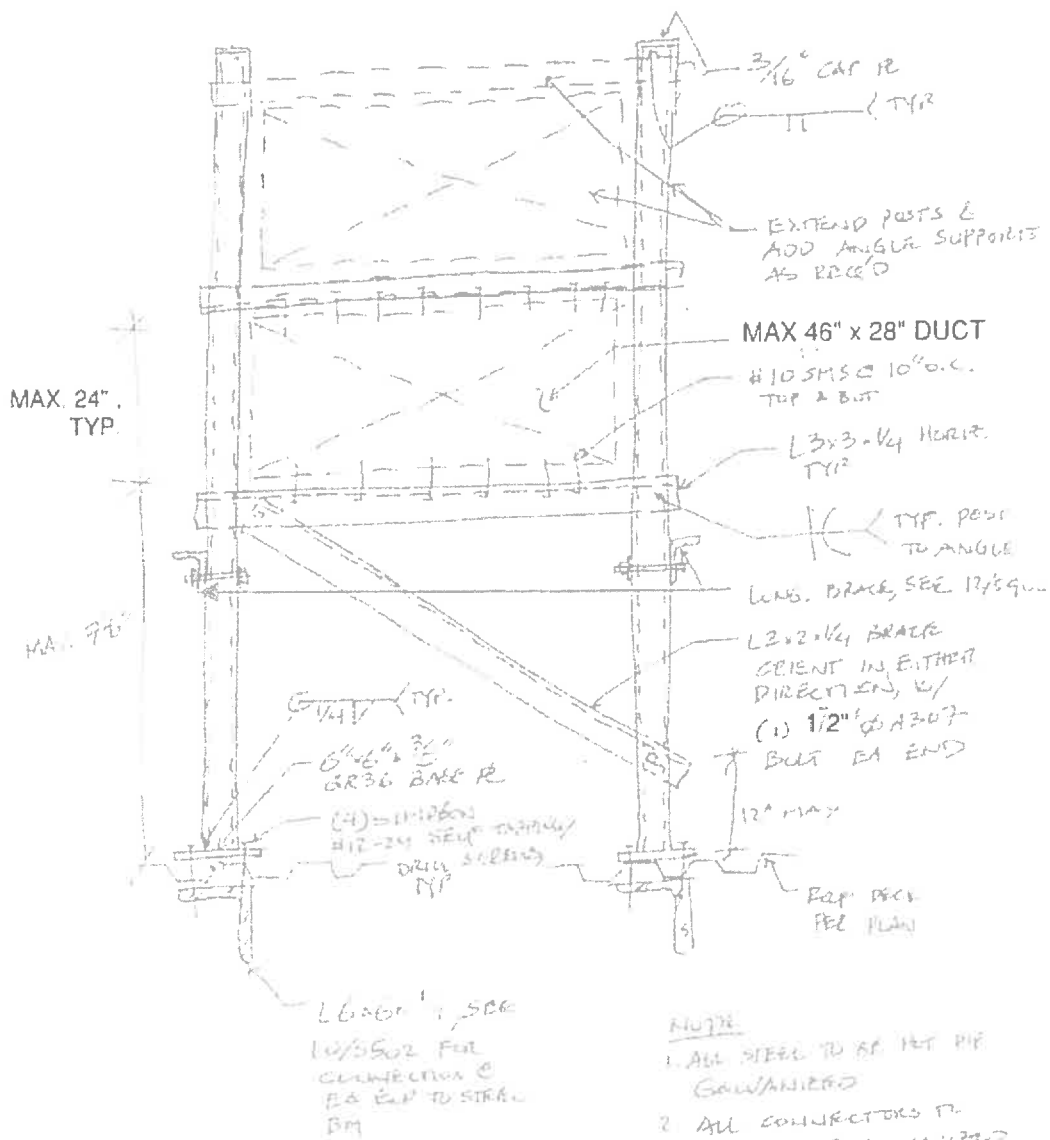 3/16" CAP PL
TYP
EXTEND POSTS &
ADD ANGLE SUPPORTS
AS REQ'D
MAX 46" x 28" DUCT
#10 SMS @ 10" O.C.
TOP & BOT
MAX. 24",
TYP.
L3x3x1/4 HORIZ.
TYP
TYP. POST
TO ANGLE
LONG. BRACE, SEE
MAX.
L2x2x1/4 BRACE
ORIENT IN EITHER
DIRECTION, W/
(1) 1/2" Ø A307
BOLT EA END
1/4 TYP.
6"x6"x
GR36 BASE PL
(4) SIMPSON
#12-24 SELF TAPPING/
DRILL SCREWS
TYP
12" MAX
DECK
PER PLAN
L6x6x SEE
10/S502 FOR
CONNECTION @
EA END TO STEEL
BM
NOTE
1. ALL STEEL TO BE HOT DIP
GALVANIZED
2. ALL CONNECTORS TO